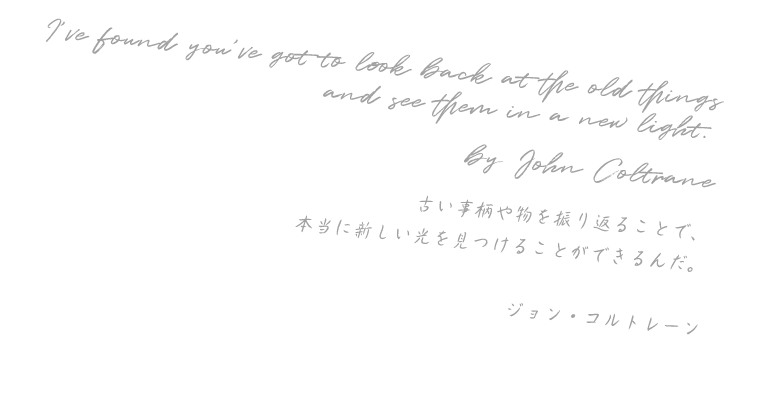 I've found you've got to look back at the old things
and see them in a new light.
by John Coltrane
古い事柄や物を振り返ることで、
本当に新しい光を見つけることができるんだ。
ジョン・コルトレーン